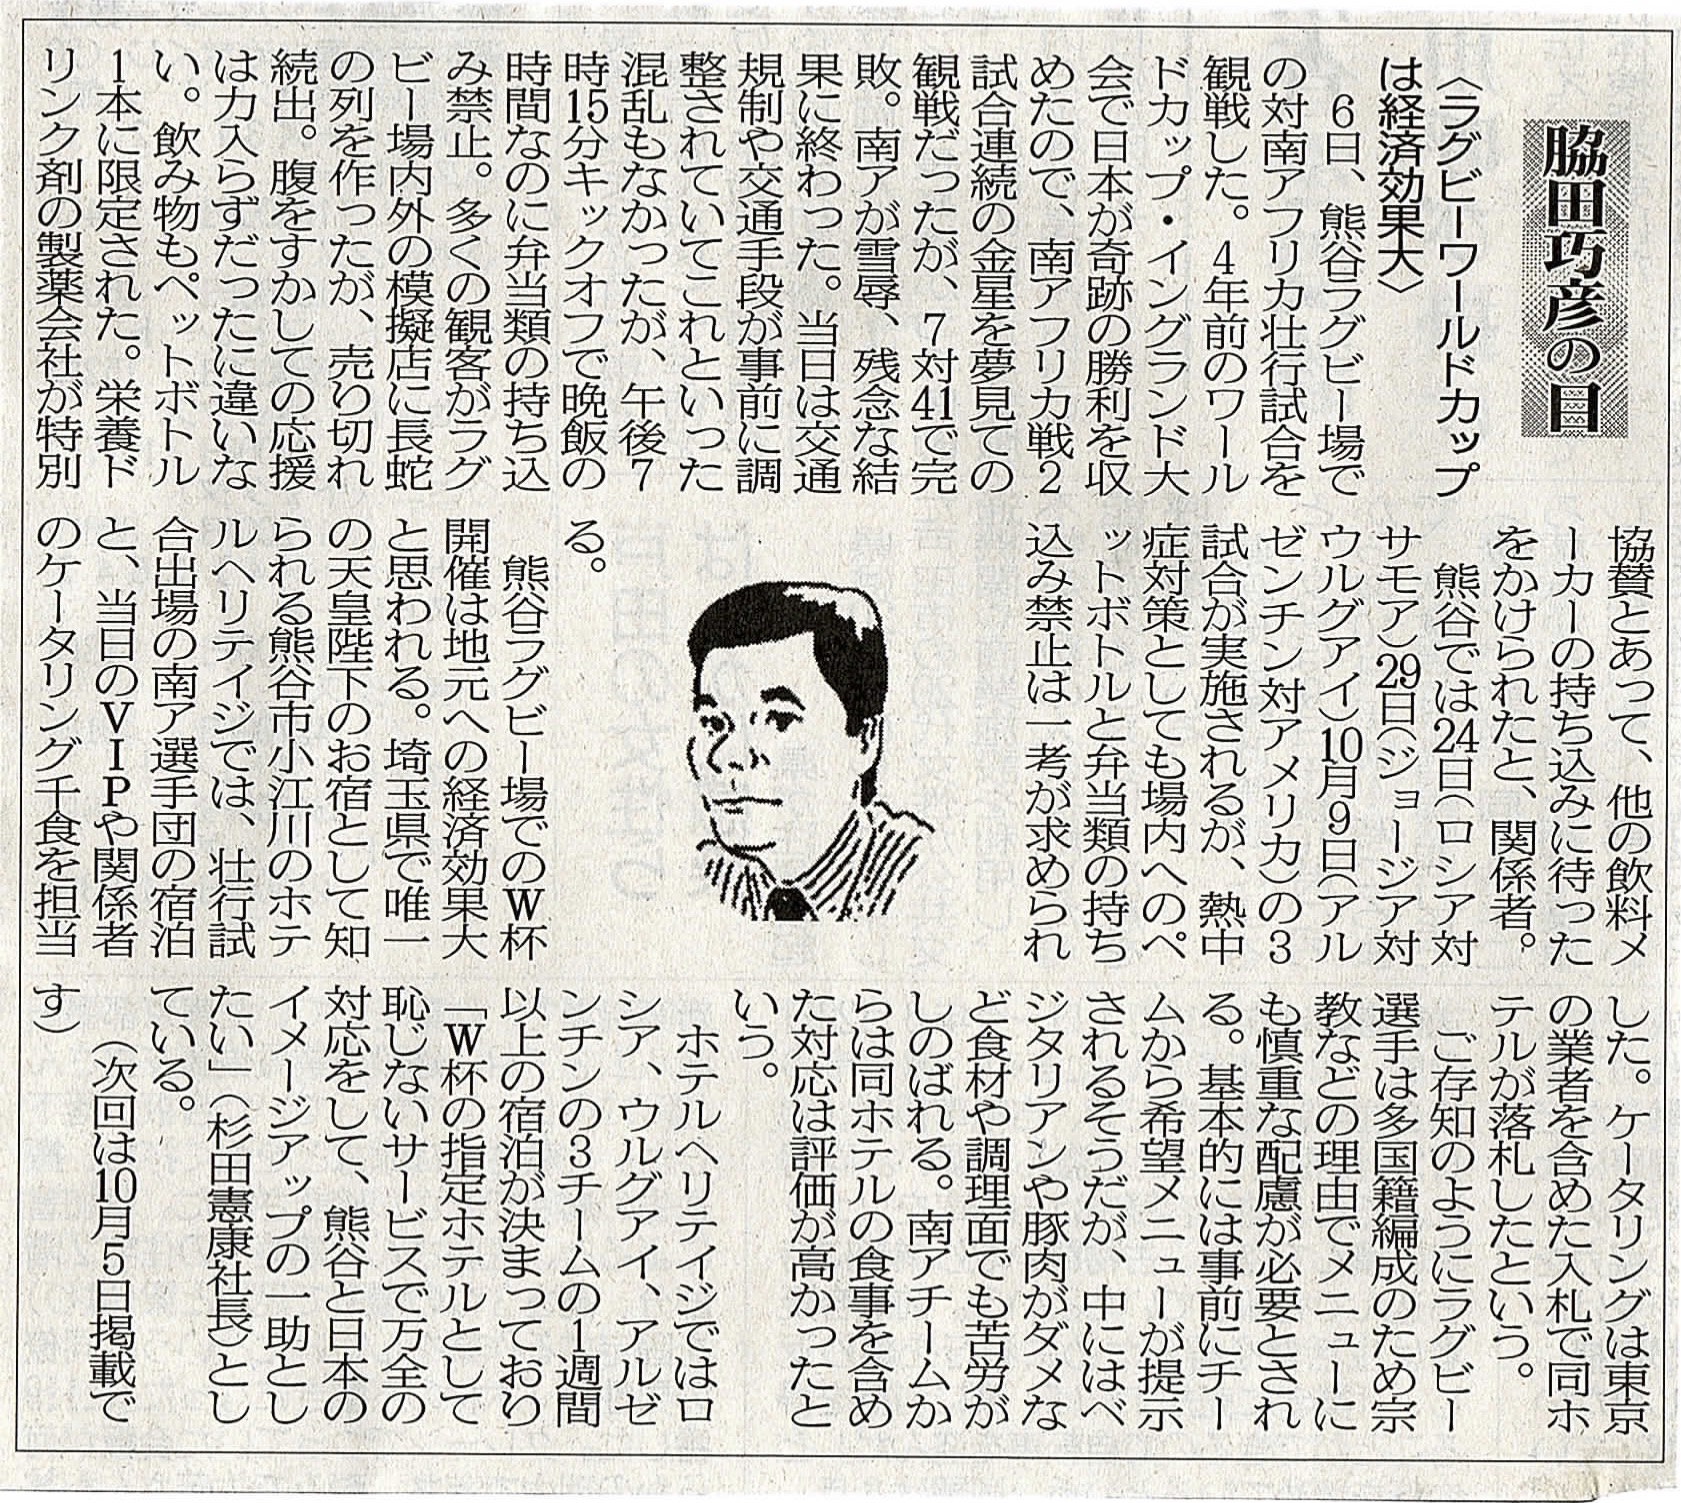 脇田巧彦の目
〈ラグビーワールドカップ
は経済効果大〉
6日、熊谷ラグビー場で
の対南アフリカ壮行試合を
観戦した。4年前のワール
ドカップ・イングランド大
会で日本が奇跡の勝利を収
めたので、南アフリカ戦2
試合連続の金星を夢見ての
観戦だったが、7対41で完
敗。南アが雪辱、残念な結
果に終わった。当日は交通
規制や交通手段が事前に調
整されていてこれといった
混乱もなかったが、午後7
時15分キックオフで晩飯の
時間なのに弁当類の持ち込
み禁止。多くの観客がラグ
ビー場内外の模擬店に長蛇
の列を作ったが、売り切れ
続出。腹をすかしての応援
は力入らずだったに違いな
い。飲み物もペットボトル
1本に限定された。栄養ド
リンク剤の製薬会社が特別
協賛とあって、他の飲料メ
ーカーの持ち込みに待った
をかけられたと、関係者。
熊谷では24日(ロシア対
サモア)29日(ジョージア対
ウルグアイ)10月9日(アル
ゼンチン対アメリカ)の3
試合が実施されるが、熱中
症対策としても場内へのペ
ットボトルと弁当類の持ち
込み禁止は一考が求められ
る。
熊谷ラグビー場でのW杯
開催は地元への経済効果大
と思われる。埼玉県で唯一
の天皇陛下のお宿として知
られる熊谷市小江川のホテ
ルヘリテイジでは、壮行試
合出場の南ア選手団の宿泊
と、当日のVIPや関係者
のケータリング千食を担当
した。ケータリングは東京
の業者を含めた入札で同ホ
テルが落札したという。
ご存知のようにラグビー
選手は多国籍編成のため宗
教などの理由でメニューに
も慎重な配慮が必要とされ
る。基本的には事前にチー
ムから希望メニューが提示
されるそうだが、中にはベ
ジタリアンや豚肉がダメな
ど食材や調理面でも苦労が
しのばれる。南アチームか
らは同ホテルの食事を含め
た対応は評価が高かったと
いう。
ホテルヘリテイジではロ
シア、ウルグアイ、アルゼ
ンチンの3チームの1週間
以上の宿泊が決まっており
「W杯の指定ホテルとして
恥じないサービスで万全の
対応をして、熊谷と日本の
イメージアップの一助とし
たい」(杉田憲康社長)とし
ている。
(次回は10月5日掲載で
す)